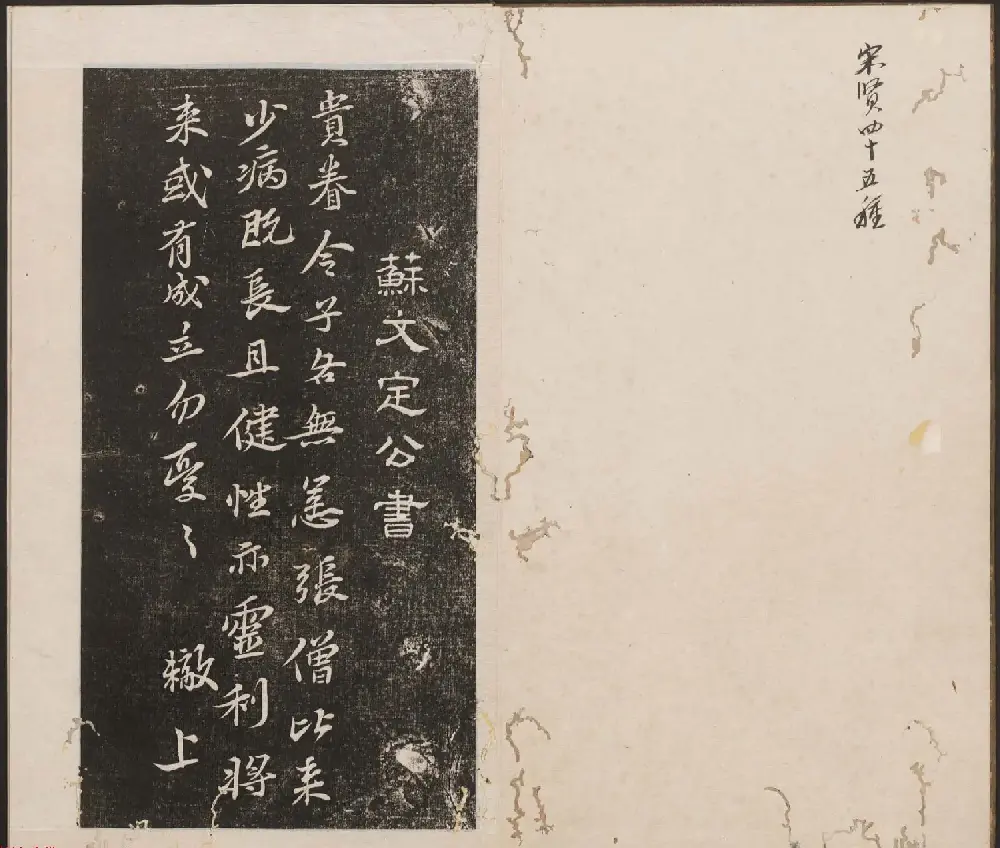 宋贤四十五種
蘇文定公書
貴眷令子各無恙張僧比来
少病既長且健性亦靈利将
来或有成立勿憂〻 轍上